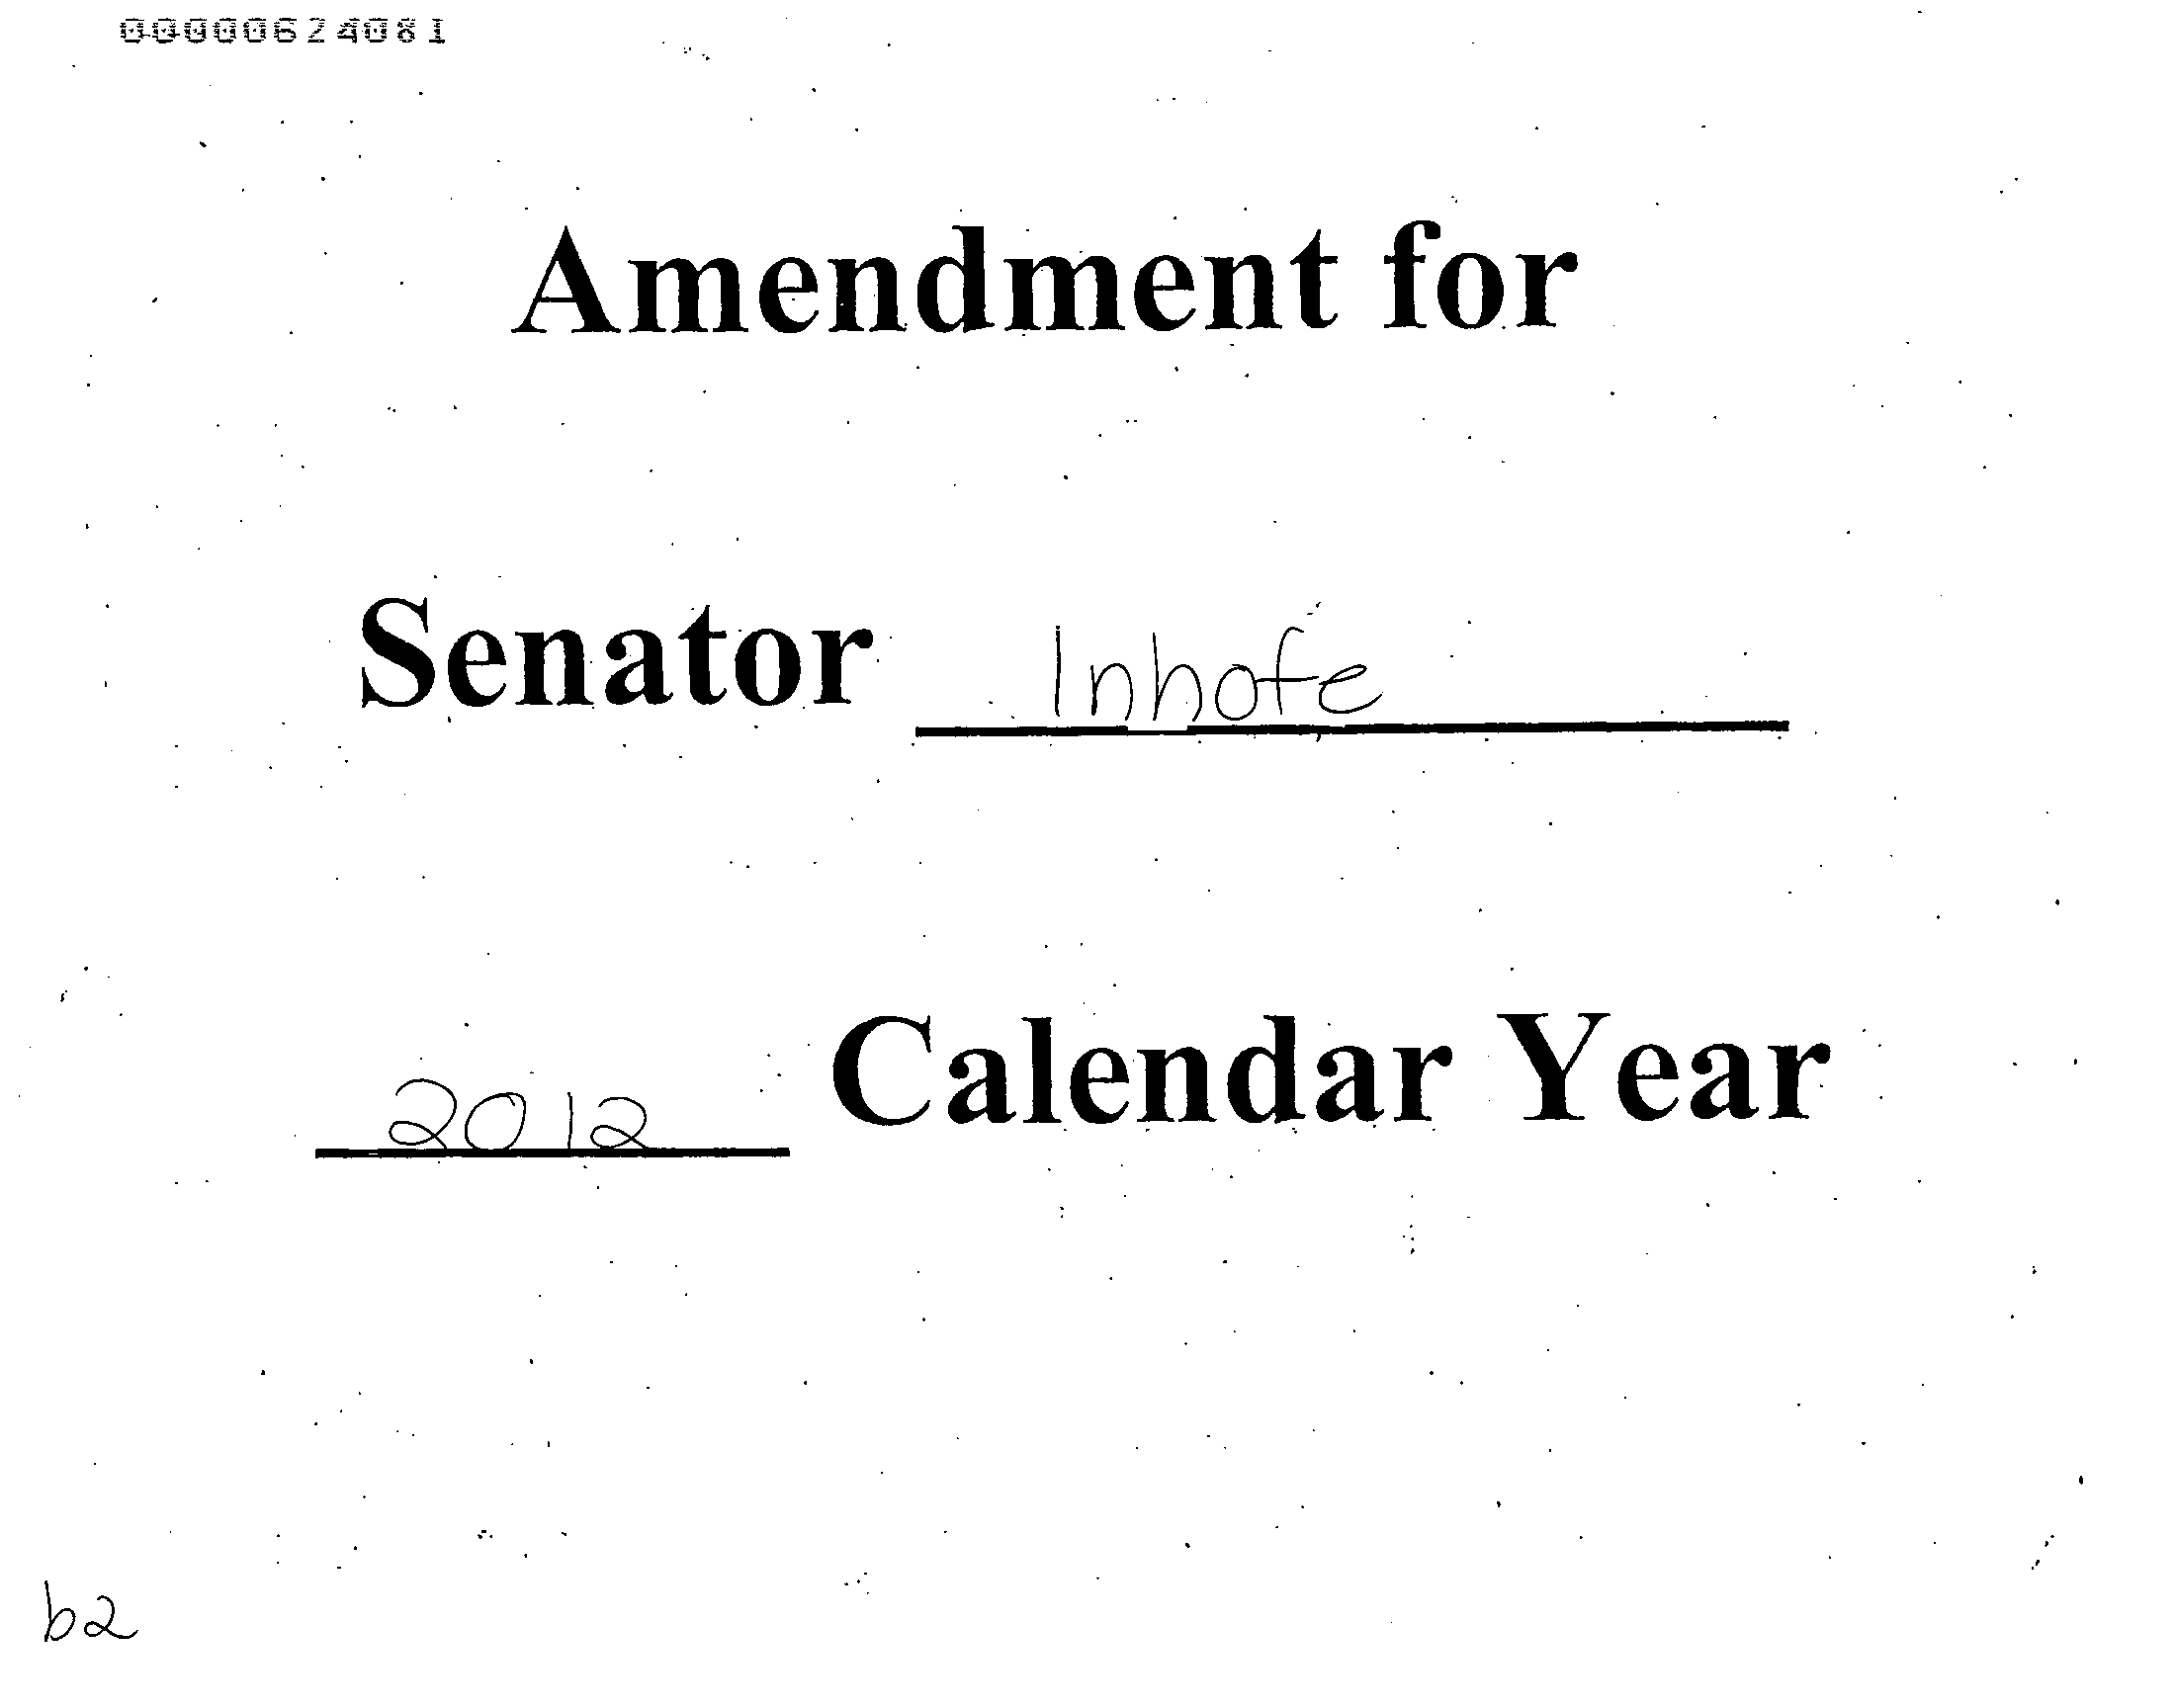 00000624081
Amendment for
Senator Inhofe
2012 Calendar Year
b2